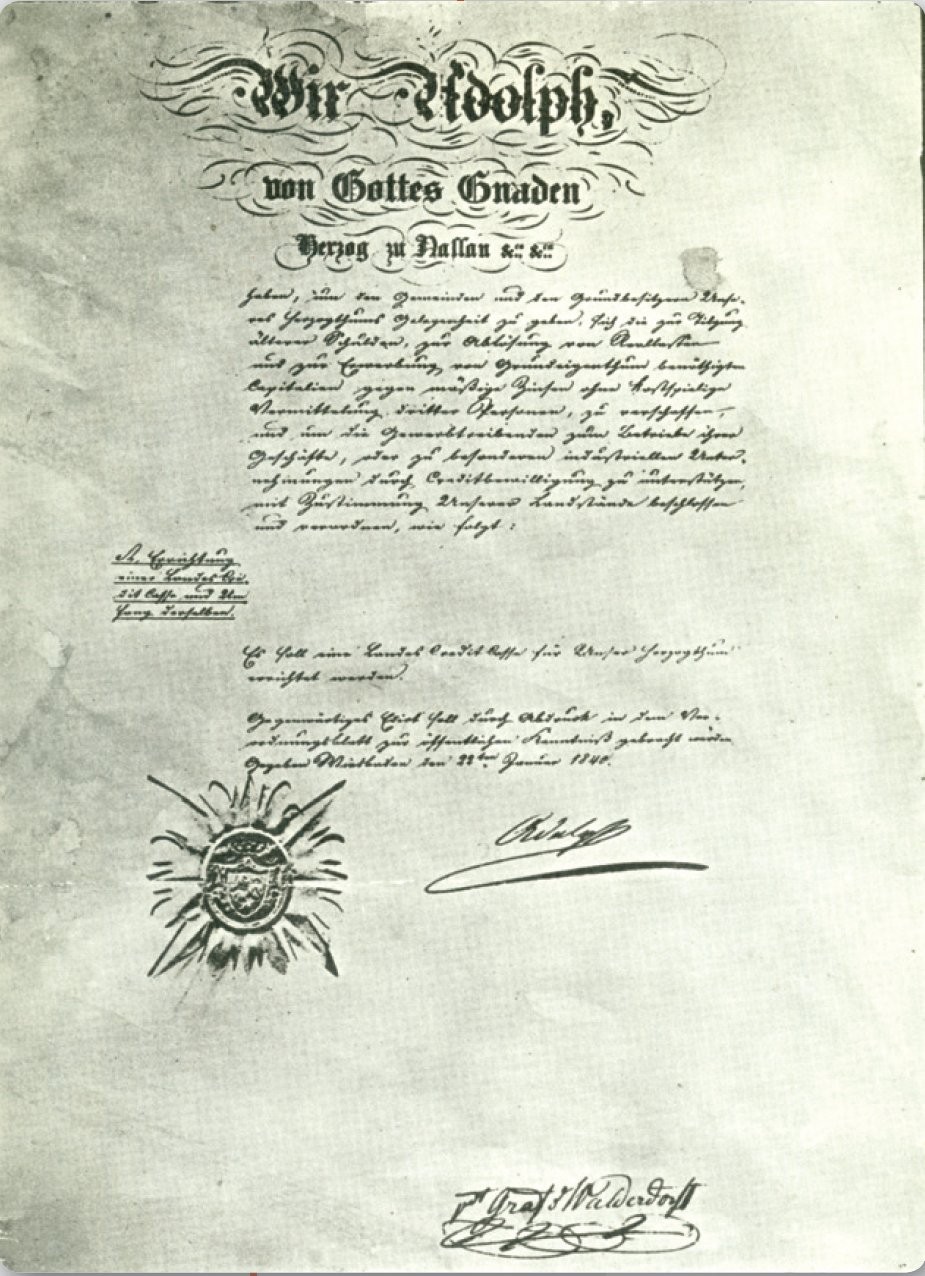 Wir Adolph,
von Gottes Gnaden
Herzog zu Nassau &:: &::
haben, um den Gemeinden und den Grundbesitzern Unse-
res Herzogthums Gelegenheit zu geben, sich die zur Tilgung
älterer Schulden, zur Ablösung von Reallasten
und zur Erwerbung von Grundeigenthum benöthigten
Capitalien gegen mäßige Zinsen ohne kostspielige
Vermittelung dritter Personen, zu verschaffen,
und um die Gewerbtreibenden zum Betriebe ihrer
Geschäfte, oder zu besonderen industriellen Unter-
nehmungen durch Creditbewilligung zu unterstützen,
mit Zustimmung Unserer Landstände beschlossen
und verordnen, wie folgt:
A. Errichtung
einer Landes Cre-
dit Casse und Um
fang derselben.
Es soll eine Landes Credit Casse für Unser Herzogthum
errichtet werden.
Gegenwärtiges Edict soll durch Abdruck in dem Ver-
ordnungsblatt zur öffentlichen Kenntniß gebracht werden
Gegeben Wiesbaden den 22ten Januar 1840.
Adolph
vt Graf v Walderdorff